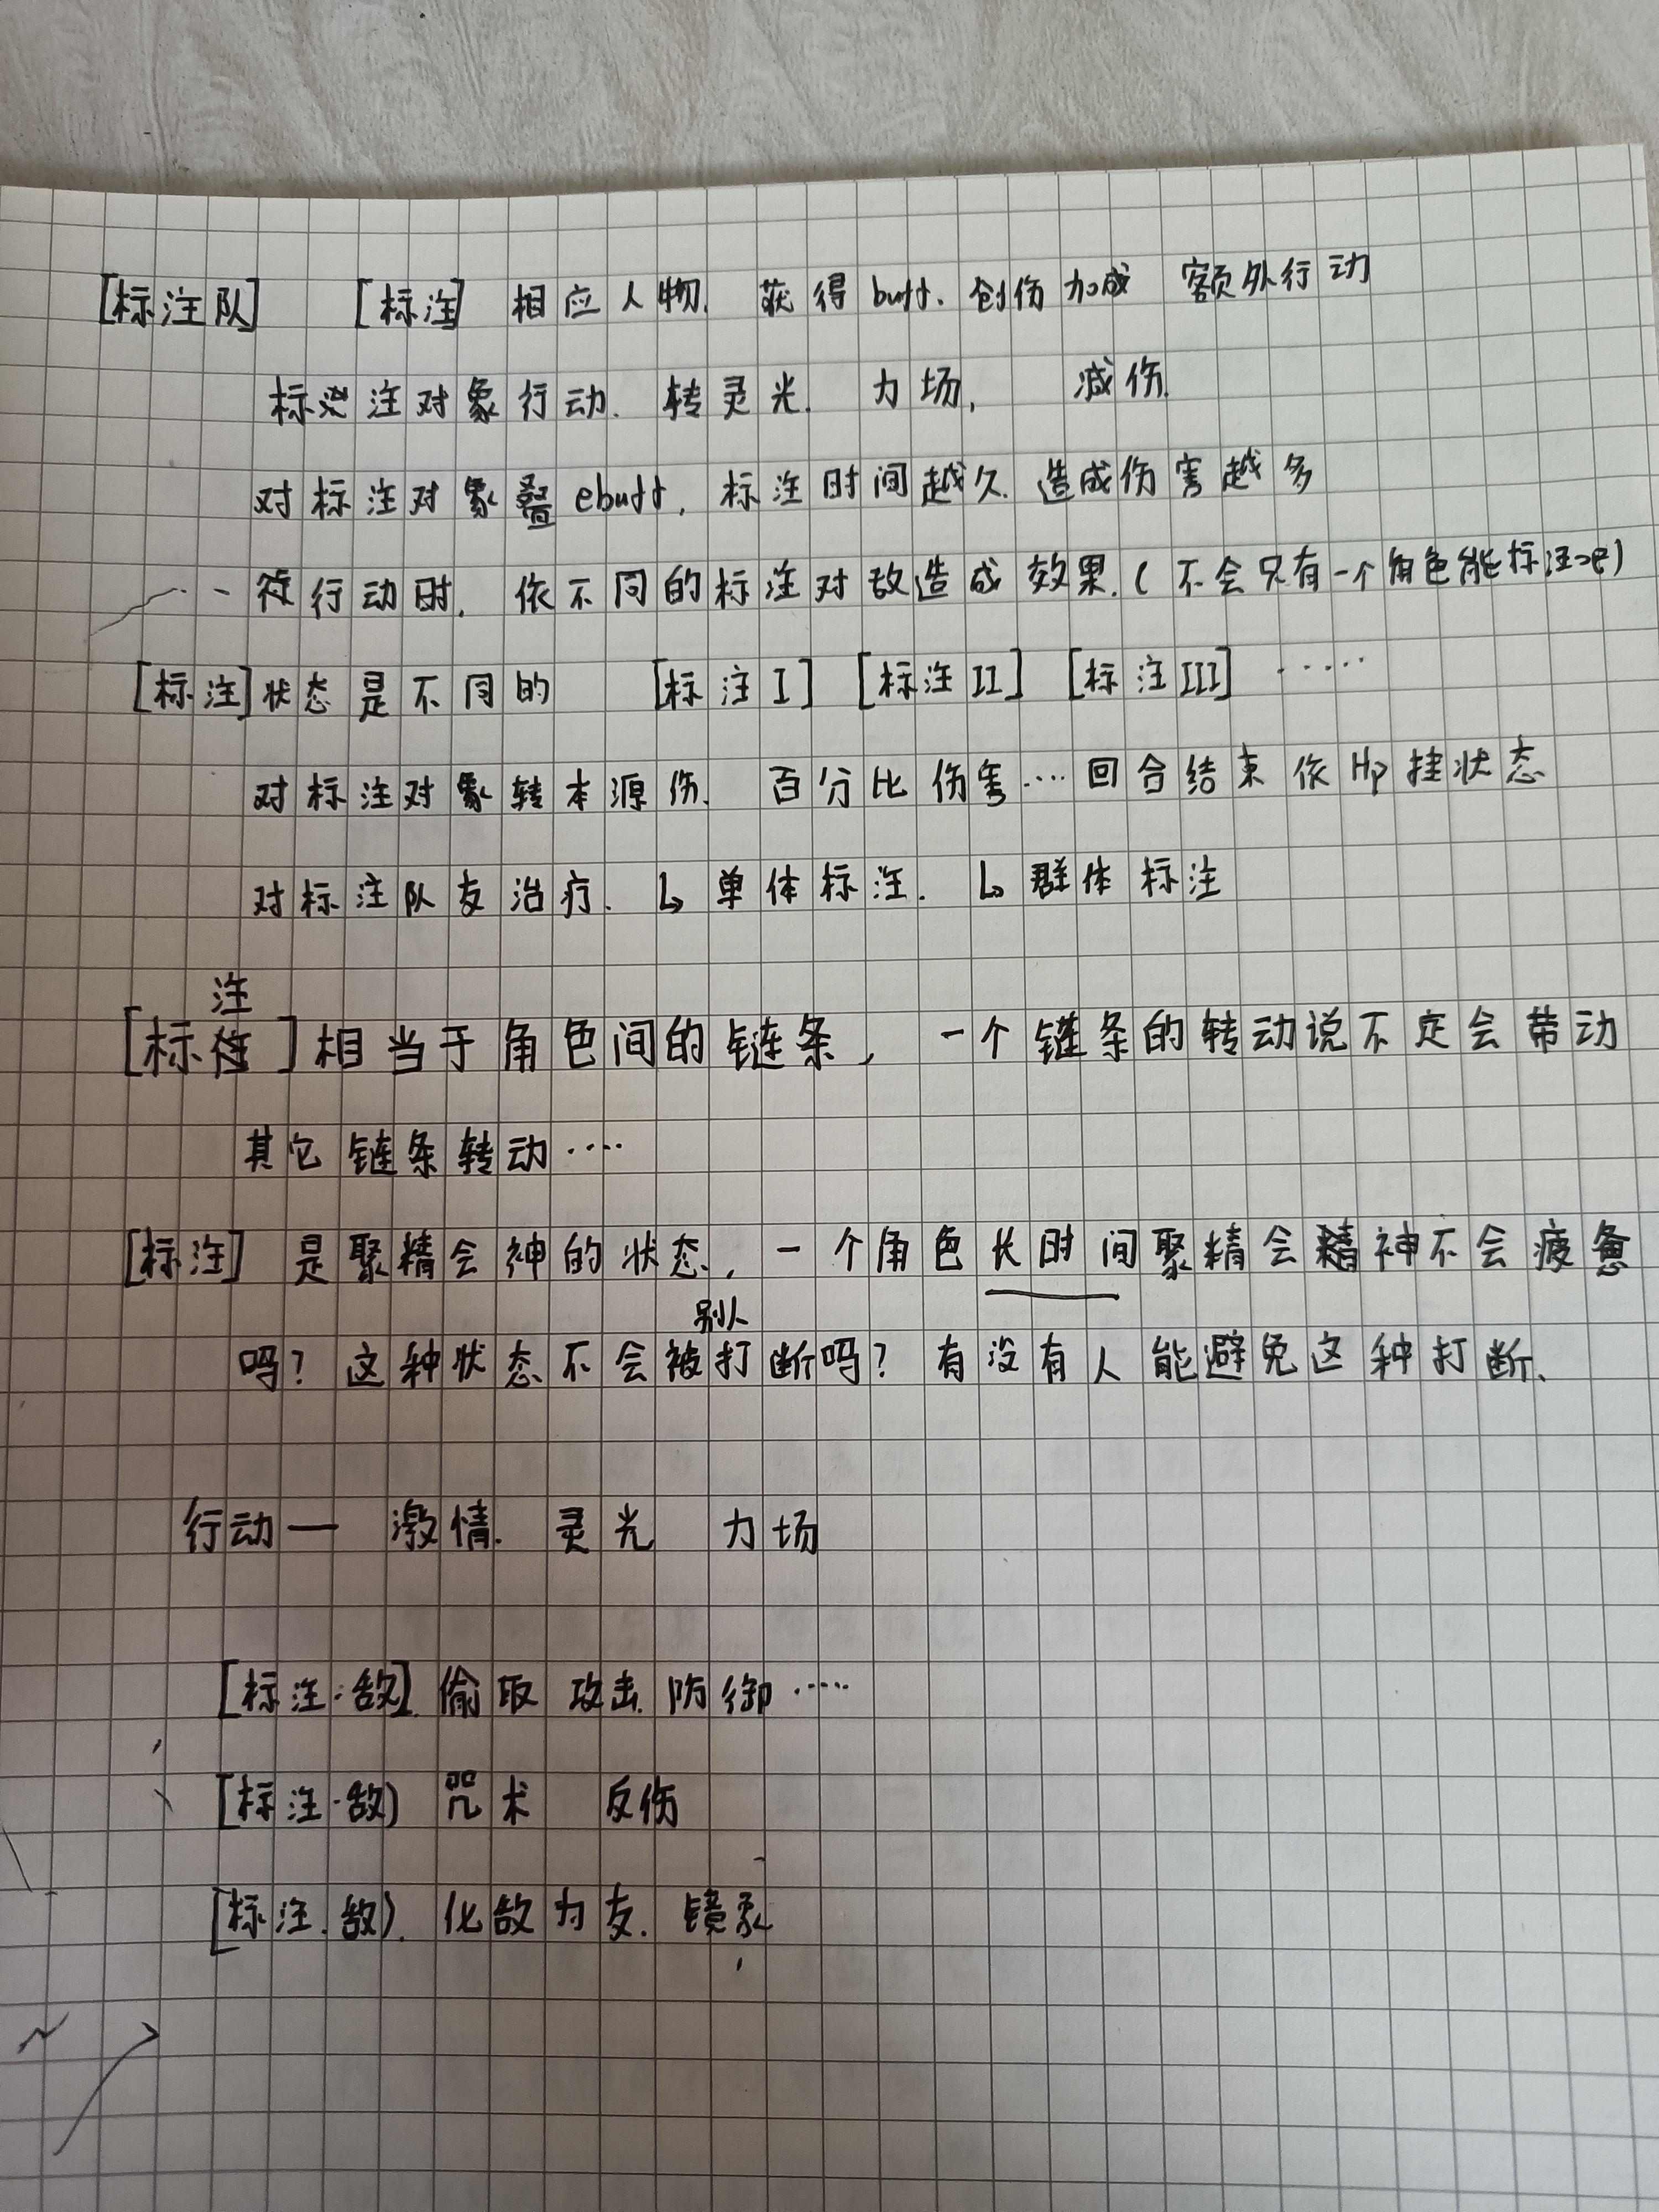 [标注队] [标注] 相应人物. 获得buff. 创伤加成 额外行动
标注对象行动. 转灵光. 力场, 减伤.
对标注对象叠ebuff, 标注时间越久. 造成伤害越多
行动时. 依不同的标注对敌造成效果. (不会只有一个角色能标注吧)
[标注]状态是不同的 [标注I] [标注II] [标注III] ……
对标注对象转本源伤. 百分比伤害…. 回合结束依Hp挂状态
对标注队友治疗. ↳ 单体标注. ↳ 群体标注
[标注]相当于角色间的链条, 一个链条的转动说不定会带动
其它链条转动….
[标注] 是聚精会神的状态, 一个角色长时间聚精会神不会疲惫
吗? 这种状态不会被别人打断吗? 有没有人能避免这种打断.
行动— 激情. 灵光 力场
[标注·敌] 偷取 攻击 防御…..
[标注·敌) 咒术 反伤
[标注.敌). 化敌为友. 镜象